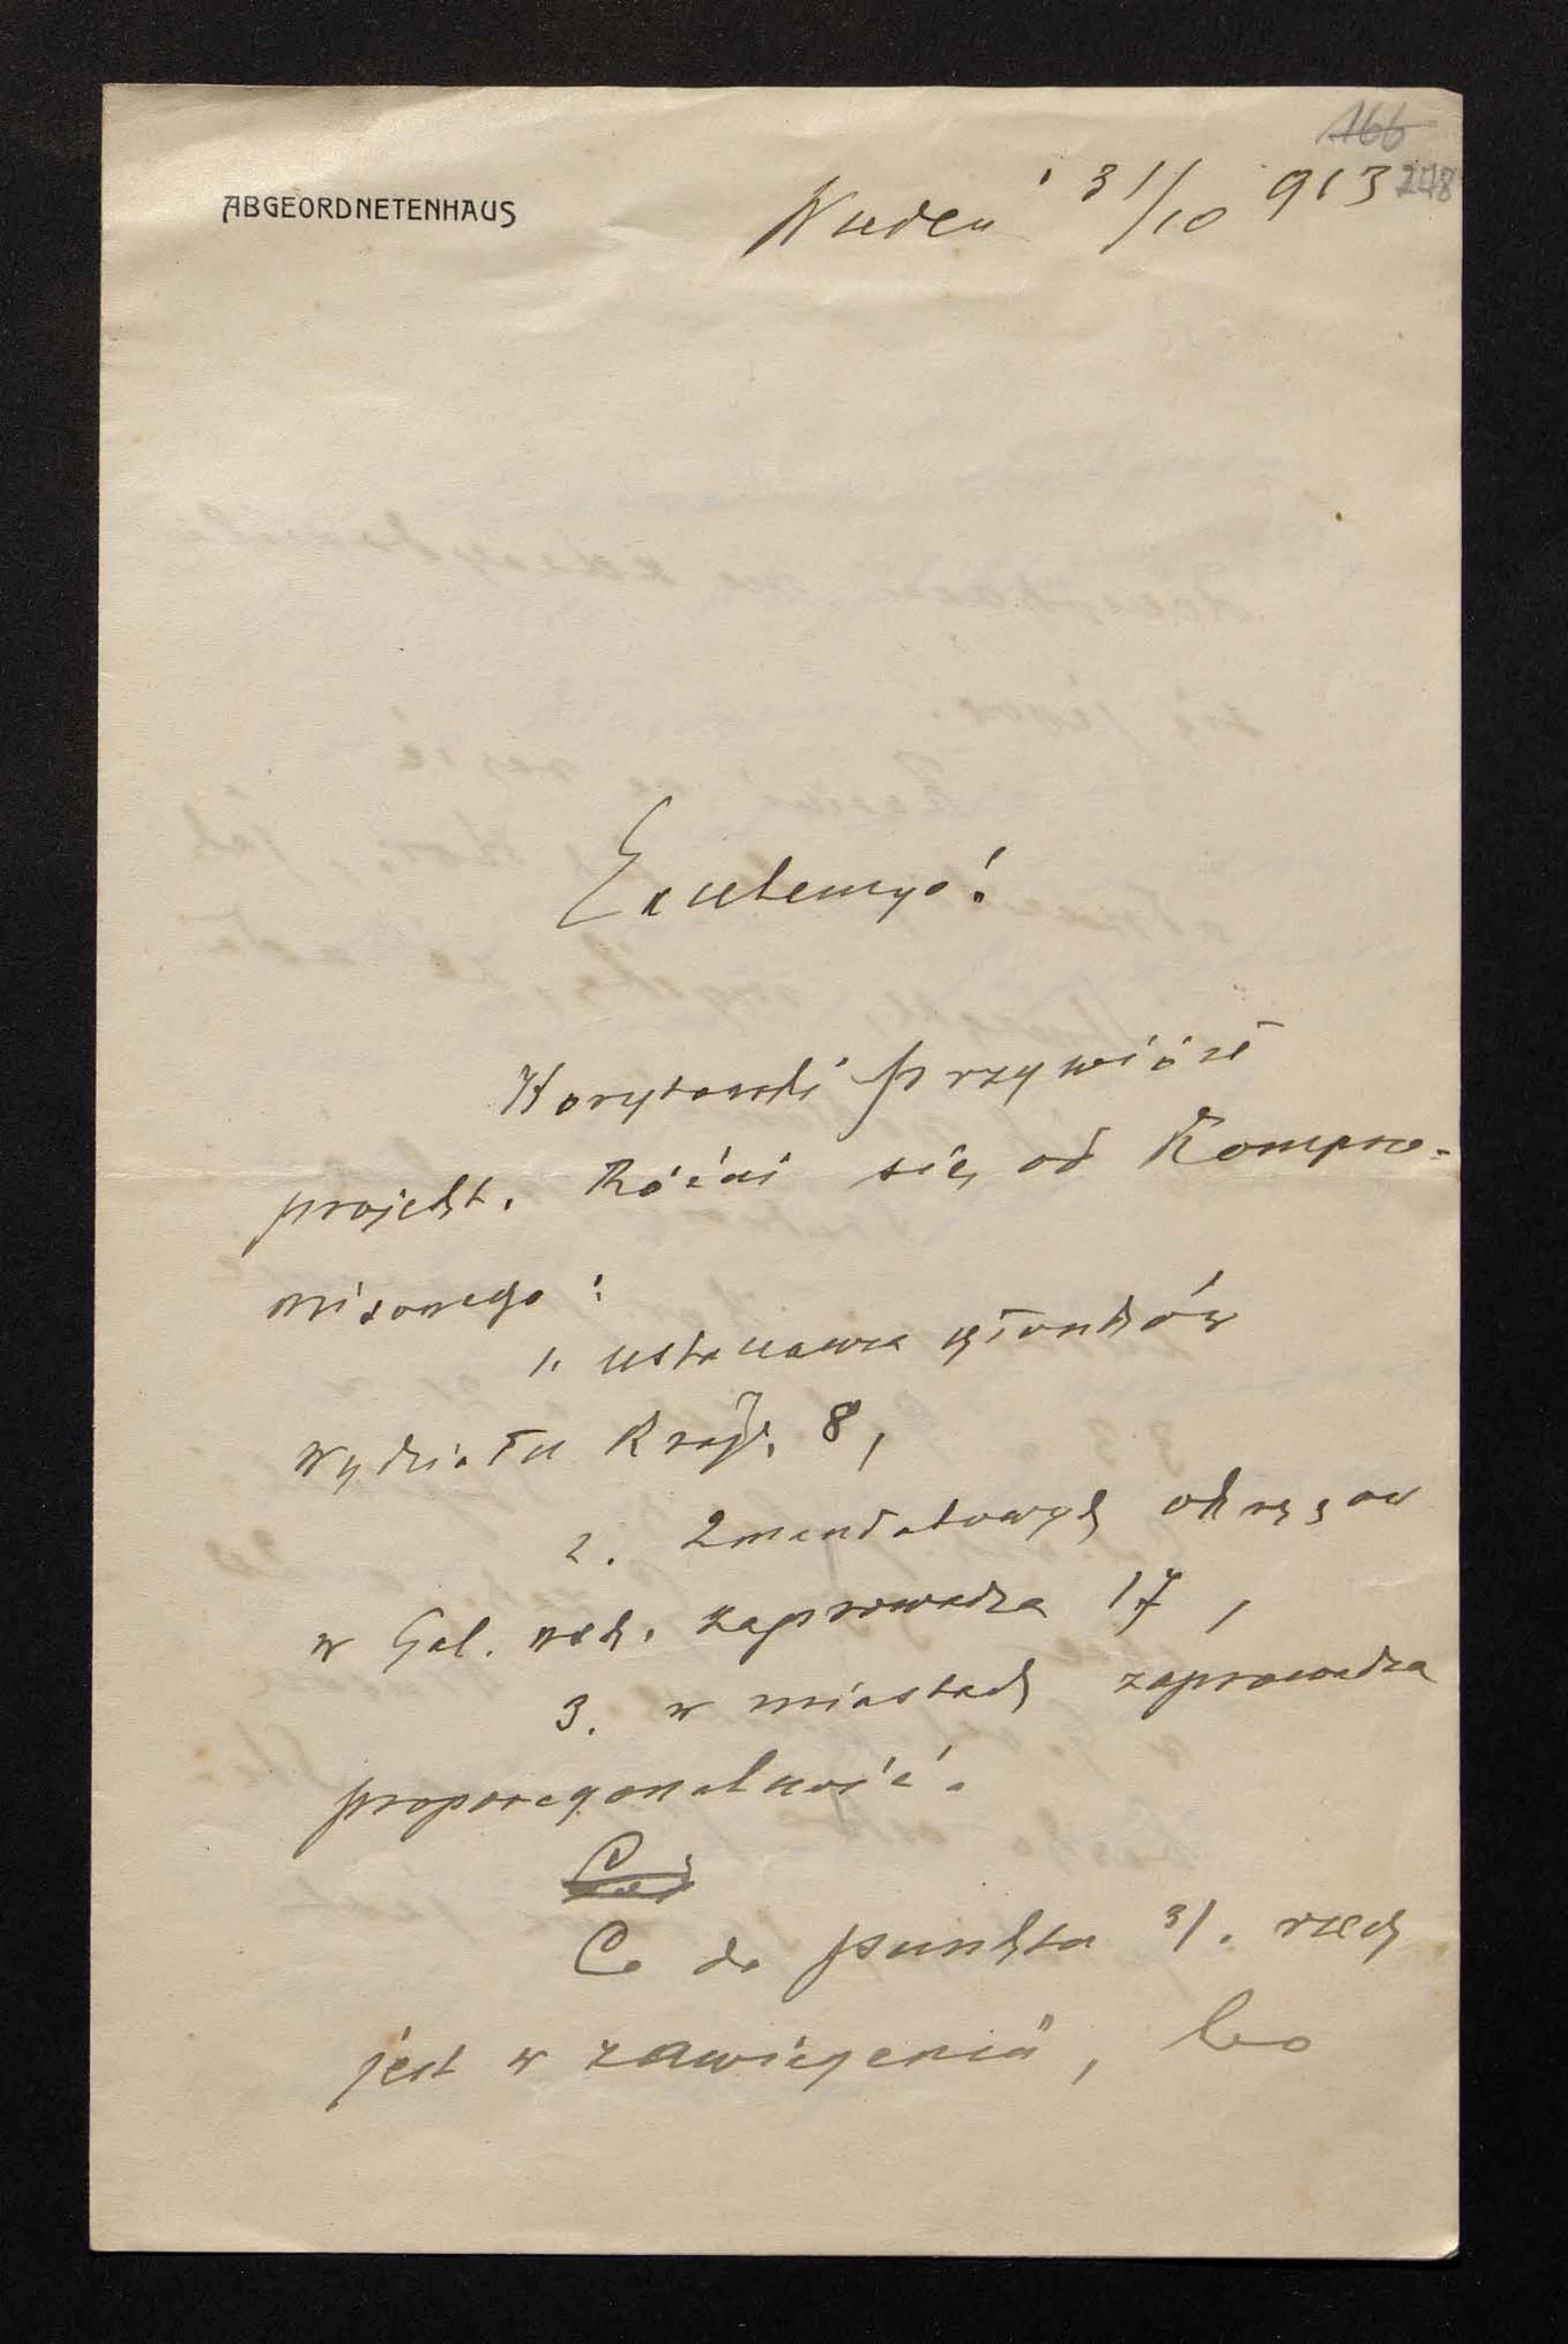 166
248
ABGEORDNETENHAUS
Wiedeń 31/10 913
Excelencyo!
Korytowski przywiózł
projekt. Różni się od Kompro-
misowego:
1. ustanawia członków
Wydziału Kraj. 8,
2. 2mandatowych okręgów
w Gal. wsch. zaprowadza 17,
3. w miastach zaprowadza
proporcyonalność.
Co do punktu 3/. rzecz
jest w zawieszeniu, bo